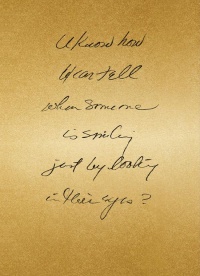 U know how
U can tell
when someone
is smiling
just by looking
in their eyes?